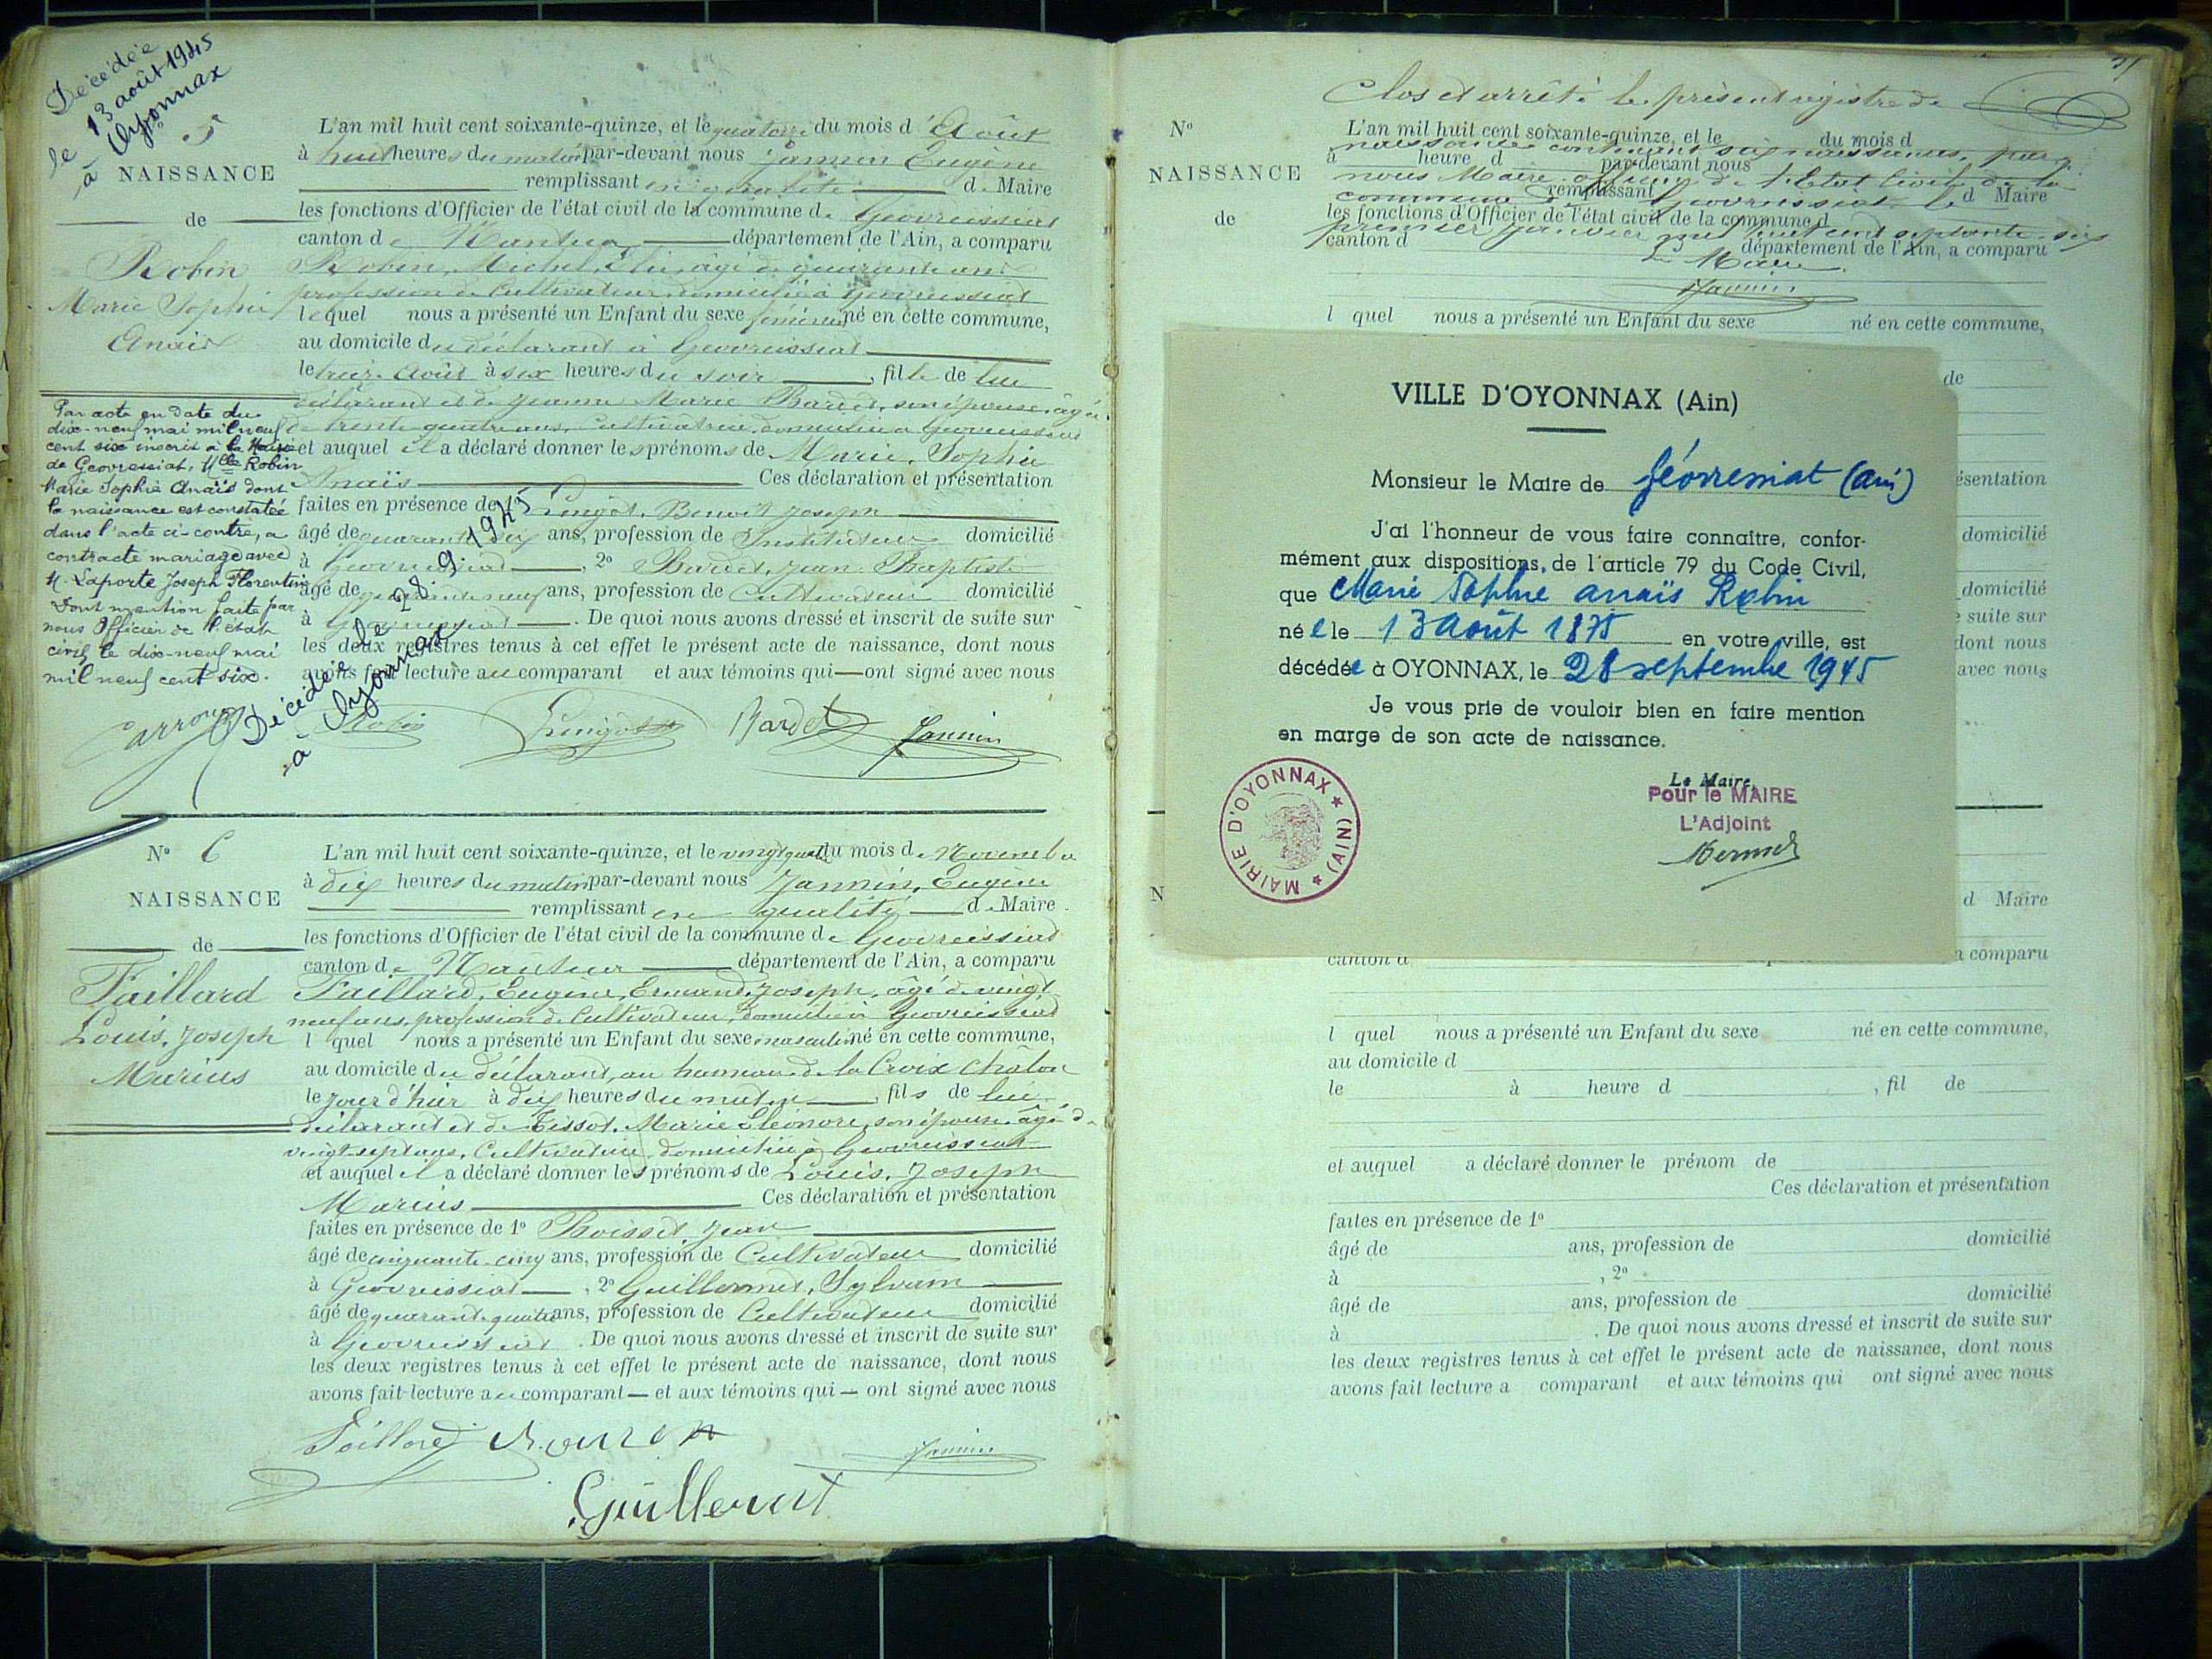 Décédée
le 13 août 1945
à Oyonnax
5
NAISSANCE
de
Robin
Marie Sophie
Anaïs
Par acte en date du
dix-neuf mai mil neuf
cent six inscrit à la Mairie
de Geovressiat, Mlle Robin
Marie Sophie Anaïs dont
la naissance est constatée
dans l'acte ci-contre, a
contracté mariage avec
M. Laporte Joseph Florentin
Dont mention faite par
nous Officier de l'état
civil le dix-neuf mai
mil neuf cent six.
L'an mil huit cent soixante-quinze, et le quatorze du mois d'Août
à huit heures du matin par-devant nous Jannin Eugène
remplissant en qualité de Maire
les fonctions d'Officier de l'état civil de la commune de Geovreissiat
canton de Nantua département de l'Ain, a comparu
Robin, Michel, Elie, âgé de quarante ans
profession de Cultivateur, domicilié à Geovreissiat
lequel nous a présenté un Enfant du sexe féminin né en cette commune,
au domicile du déclarant à Geovreissiat
le treize Août à six heures du soir, fille de lui
déclarant et de Jeanne Marie Bardet, son épouse, âgée
de trente quatre ans, Cultivatrice, domiciliée à Geovreissiat
et auquel il a déclaré donner les prénoms de Marie, Sophie
Anaïs Ces déclaration et présentation
faites en présence de 1º Benoit Joseph
âgé de quarante six ans, profession de Instituteur domicilié
à Geovreissiat, 2º Bardet, Jean Baptiste
âgé de neuf ans, profession de Cultivateur domicilié
à Geovreissiat. De quoi nous avons dressé et inscrit de suite sur
les deux registres tenus à cet effet le présent acte de naissance, dont nous
avons fait lecture au comparant et aux témoins qui — ont signé avec nous
Décédée le 28.9.1945
à Oyonnax
Robin Bardet Jannin
Nº 6
NAISSANCE
de
Paillard
Louis, Joseph
Marius
L'an mil huit cent soixante-quinze, et le vingt quatre du mois de Novembre
à dix heures du matin par-devant nous Jannin, Eugène
remplissant en qualité de Maire
les fonctions d'Officier de l'état civil de la commune de Geovreissiat
canton de Nantua département de l'Ain, a comparu
Paillard, Eugène, Ermand, Joseph, âgé de vingt
neuf ans, profession de Cultivateur, domicilié à Geovreissiat
l quel nous a présenté un Enfant du sexe masculin né en cette commune,
au domicile du déclarant, au hameau de la Croix Châlon
le jour d'hier à dix heures du matin, fils de lui
déclarant et de Tissot, Marie Eléonore, son épouse, âgée de
vingt sept ans, Cultivatrice, domiciliée à Geovreissiat
et auquel il a déclaré donner les prénoms de Louis, Joseph
Marius Ces déclaration et présentation
faites en présence de 1º Boisset, Jean
âgé de cinquante cinq ans, profession de Cultivateur domicilié
à Geovreissiat, 2º Guillermet, Sylvain
âgé de quarante quatre ans, profession de Cultivateur domicilié
à Geovreissiat. De quoi nous avons dressé et inscrit de suite sur
les deux registres tenus à cet effet le présent acte de naissance, dont nous
avons fait lecture au comparant — et aux témoins qui — ont signé avec nous
Paillard Jannin
Guillermet
Clos et arrêté le présent registre de
Nº
NAISSANCE
de
L'an mil huit cent soixante-quinze, et le du mois d
naissances contenant six naissances, par
à heure d par-devant nous
nous Maire officier de l'Etat Civil de la
remplissant d Maire
commune de Geovreissiat le
les fonctions d'Officier de l'état civil de la commune d
premier Janvier mil huit cent septante six
canton d département de l'Ain, a comparu
Le Maire
Jannin
l quel nous a présenté un Enfant du sexe né en cette commune,
de
ésentation
domicilié
domicilié
suite sur
dont nous
avec nous
VILLE D'OYONNAX (Ain)
Monsieur le Maire de Géovressiat (Ain)
J'ai l'honneur de vous faire connaître, confor-
mément aux dispositions, de l'article 79 du Code Civil,
que Marie Sophie Anaïs Robin
née le 13 Août 1875 en votre ville, est
décédée à OYONNAX, le 28 septembre 1945
Je vous prie de vouloir bien en faire mention
en marge de son acte de naissance.
Le Maire,
Pour le MAIRE
L'Adjoint
MAIRIE D'OYONNAX ★ (AIN) ★
N
d Maire
canton d a comparu
l quel nous a présenté un Enfant du sexe né en cette commune,
au domicile d
le à heure d , fil de
et auquel a déclaré donner le prénom de
Ces déclaration et présentation
faites en présence de 1º
âgé de ans, profession de domicilié
à , 2º
âgé de ans, profession de domicilié
à . De quoi nous avons dressé et inscrit de suite sur
les deux registres tenus à cet effet le présent acte de naissance, dont nous
avons fait lecture a comparant et aux témoins qui ont signé avec nous